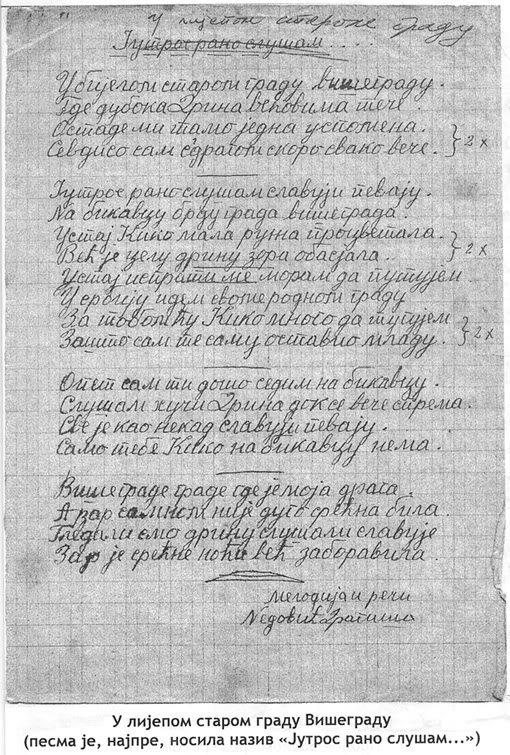 у лијепом староме граду
Јутрос рано слушам....
У бијелом старом граду вишеграду.
Где дубока Дрина вековима тече
Остаде ми тамо једна успомена.
Севдисо сам с драгом скоро свако вече. } 2 x
Јутрос рано слушам славуји певају.
На бикавцу брду града вишеграда.
Устај Кико мала ружа процветала.
Већ је целу дрину зора обасјала. } 2 x
Устај испрати ме морам да путујем
У србију идем своме родном граду
За тобом ћу Кико много да тугујем
Зашто сам те саму оставио младу. } 2 x
Опет сам ти дошо седим на бикавцу.
Слушам хучи Дрина док се вече спрема.
Све је као некад славуји певају.
Само тебе Кико на бикавцу нема.
Вишеграде граде где је моја драга.
А зар самном није дуго срећна била.
Гледали смо дрину слушали славује
Зар је срећне ноћи већ заборавила.
Мелодија и речи
Недовић Драгиша
У лијепом старом граду Вишеграду
(песма је, најпре, носила назив «Јутрос рано слушам...»)